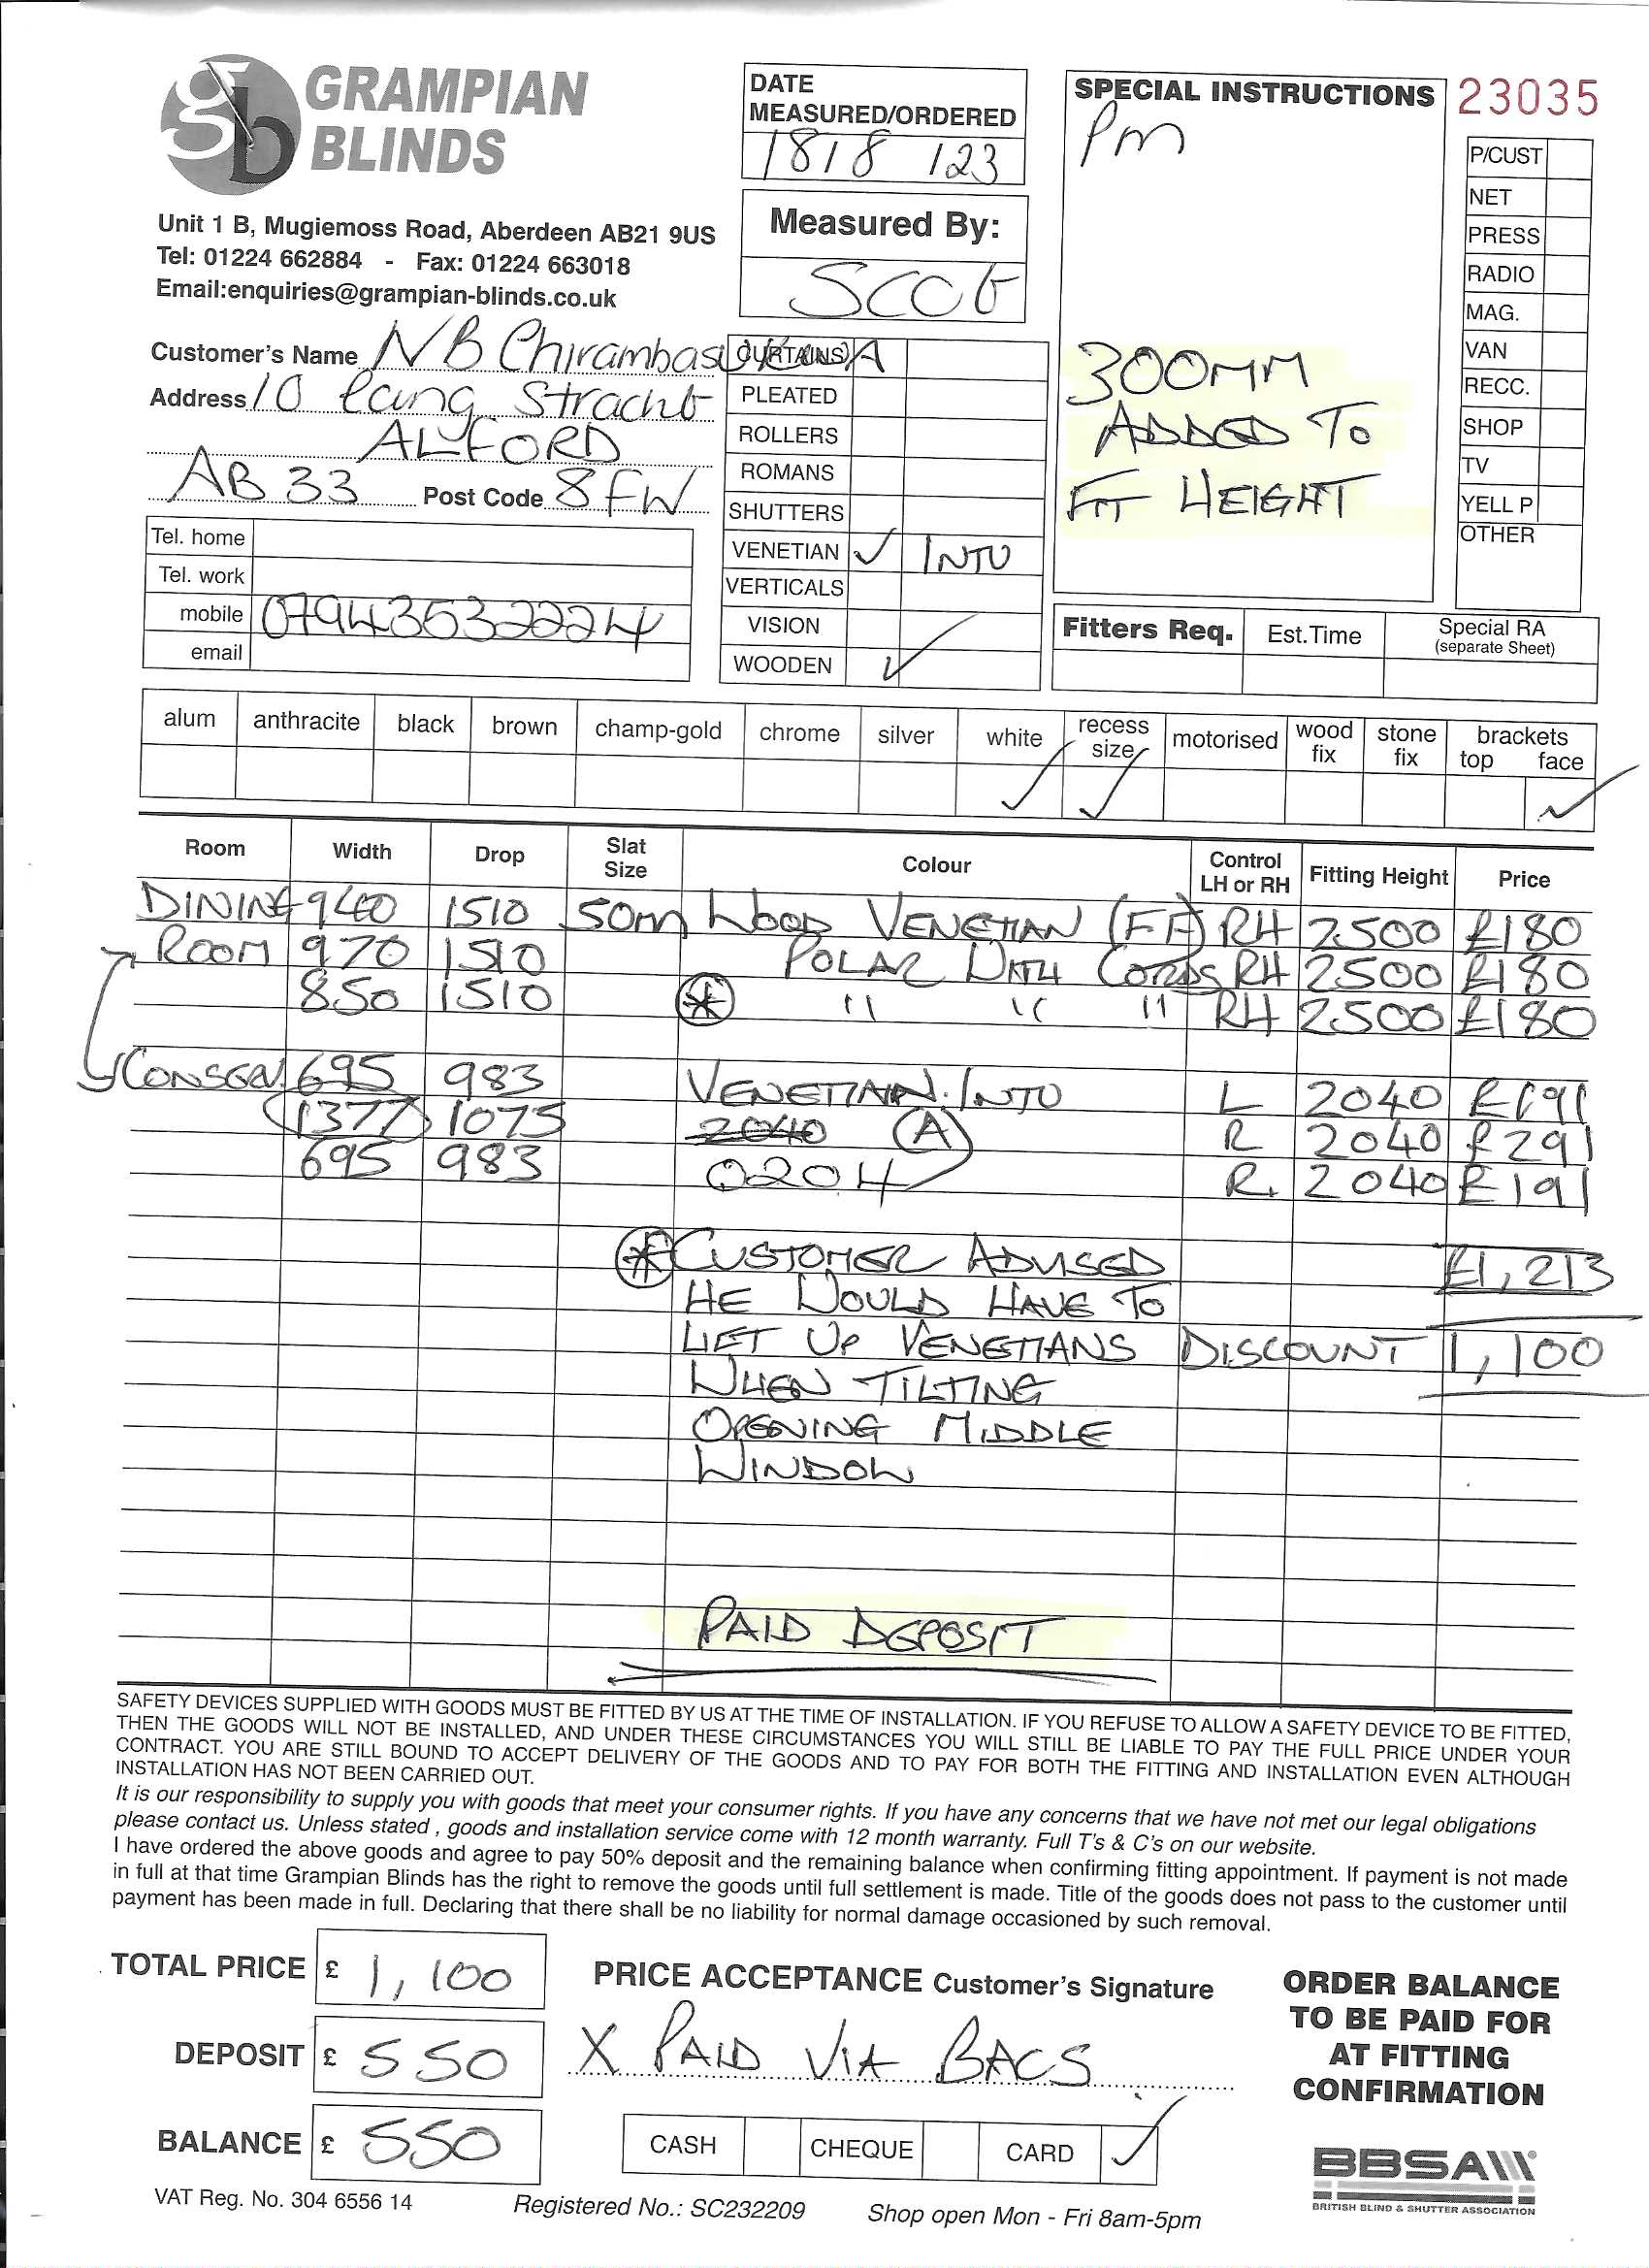 GRAMPIAN
BLINDS
Unit 1 B, Mugiemoss Road, Aberdeen AB21 9US
Tel: 01224 662884 - Fax: 01224 663018
Email:enquiries@grampian-blinds.co.uk
DATE
MEASURED/ORDERED
18/8/23
Measured By:
SCOTT
SPECIAL INSTRUCTIONS
Pm
300MM
ADDED TO
FIT HEIGHT
23035
P/CUST
NET
PRESS
RADIO
MAG.
VAN
RECC.
SHOP
TV
YELL P
OTHER
Customer's Name NB Chirambasukwa
Address 10 Lang Stracht
ALFORD
AB33 Post Code 8FW
Tel. home
Tel. work
mobile 07943532224
email
CURTAINS
PLEATED
ROLLERS
ROMANS
SHUTTERS
VENETIAN ✓ INTU
VERTICALS
VISION
WOODEN ✓
Fitters Req. Est.Time Special RA
(separate Sheet)
alum anthracite black brown champ-gold chrome silver white recess size motorised wood fix stone fix brackets top face
✓ ✓ ✓
Room Width Drop Slat Size Colour Control LH or RH Fitting Height Price
DINING 940 1510 50m WOOD VENETIAN (FF) RH 2500 £180
ROOM 970 1510 POLAR WITH CORDS RH 2500 £180
850 1510 * " " " RH 2500 £180
CONSERV. 695 983 VENETIAN INTU L 2040 £191
1377 1075 2040 (A) R 2040 £291
695 983 0204 R. 2040 £191
* CUSTOMER ADVISED £1,213
HE WOULD HAVE TO
LIFT UP VENETIANS DISCOUNT 1,100
WHEN TILTING
OPENING MIDDLE
WINDOW
PAID DEPOSIT
SAFETY DEVICES SUPPLIED WITH GOODS MUST BE FITTED BY US AT THE TIME OF INSTALLATION. IF YOU REFUSE TO ALLOW A SAFETY DEVICE TO BE FITTED,
THEN THE GOODS WILL NOT BE INSTALLED, AND UNDER THESE CIRCUMSTANCES YOU WILL STILL BE LIABLE TO PAY THE FULL PRICE UNDER YOUR
CONTRACT. YOU ARE STILL BOUND TO ACCEPT DELIVERY OF THE GOODS AND TO PAY FOR BOTH THE FITTING AND INSTALLATION EVEN ALTHOUGH
INSTALLATION HAS NOT BEEN CARRIED OUT.
It is our responsibility to supply you with goods that meet your consumer rights. If you have any concerns that we have not met our legal obligations
please contact us. Unless stated , goods and installation service come with 12 month warranty. Full T's & C's on our website.
I have ordered the above goods and agree to pay 50% deposit and the remaining balance when confirming fitting appointment. If payment is not made
in full at that time Grampian Blinds has the right to remove the goods until full settlement is made. Title of the goods does not pass to the customer until
payment has been made in full. Declaring that there shall be no liability for normal damage occasioned by such removal.
TOTAL PRICE £ 1,100
DEPOSIT £ 550
BALANCE £ 550
PRICE ACCEPTANCE Customer's Signature
X PAID VIA BACS
CASH CHEQUE CARD ✓
ORDER BALANCE
TO BE PAID FOR
AT FITTING
CONFIRMATION
BBSA
BRITISH BLIND & SHUTTER ASSOCIATION
VAT Reg. No. 304 6556 14 Registered No.: SC232209 Shop open Mon - Fri 8am-5pm